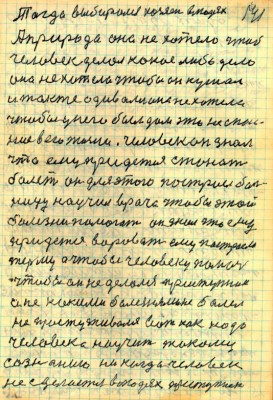 Тогда выбирался хозяен в людях 141
А природа она не хотела чтоб
человек делал какое либо дело
она не хотела чтобы он кушал
и также одивался она не хотела
чтобы у него был дом это не спасе
ние его жизни. Человек он знал
что ему придется стонат
болет он для этого построил бол
ницу научил врача чтобы этой
болезни помогат он знал что ему
придется вороват ему построил
тюрму а чтобы человеку
чтобы он не делался преступником
а не какими болезнями не болел
не простуживался вот как надо
человека научит такому
сознанию никогда человек
не сделается в людях преступник